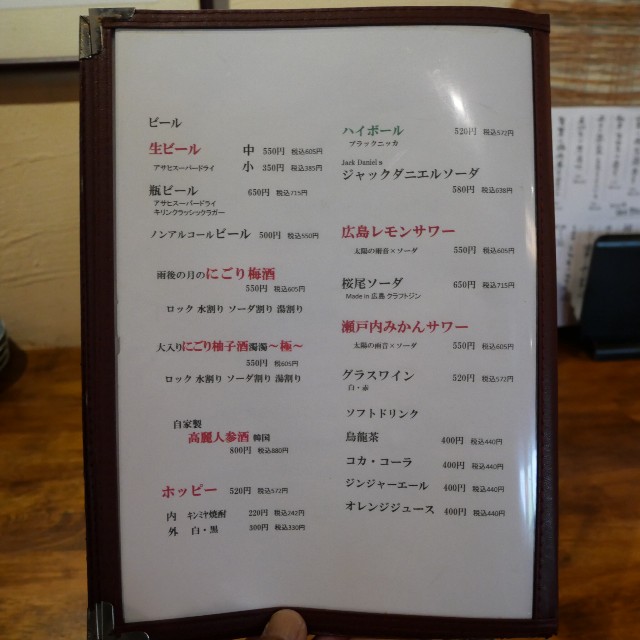 ビール
生ビール 中 550円 税込605円
アサヒスーパードライ 小 350円 税込385円
瓶ビール 650円 税込715円
アサヒスーパードライ
キリンクラッシックラガー
ノンアルコールビール 500円 税込550円
雨後の月のにごり梅酒
550円 税込605円
ロック 水割り ソーダ割り 湯割り
大入りにごり柚子酒濁濁〜極〜
550円 税605円
ロック 水割り ソーダ割り 湯割り
自家製
高麗人参酒 韓国
800円 税込880円
ホッピー 520円 税込572円
内 キンミヤ焼酎 220円 税込242円
外 白・黒 300円 税込330円
ハイボール 520円 税込572円
ブラックニッカ
Jack Daniel's
ジャックダニエルソーダ
580円 税込638円
広島レモンサワー
太陽の雨音×ソーダ 550円 税込605円
桜尾ソーダ 650円 税込715円
Made in 広島 クラフトジン
瀬戸内みかんサワー
太陽の雨音×ソーダ 550円 税込605円
グラスワイン 520円 税込572円
白・赤
ソフトドリンク
烏龍茶 400円 税込440円
コカ・コーラ 400円 税込440円
ジンジャーエール 400円 税込440円
オレンジジュース 400円 税込440円